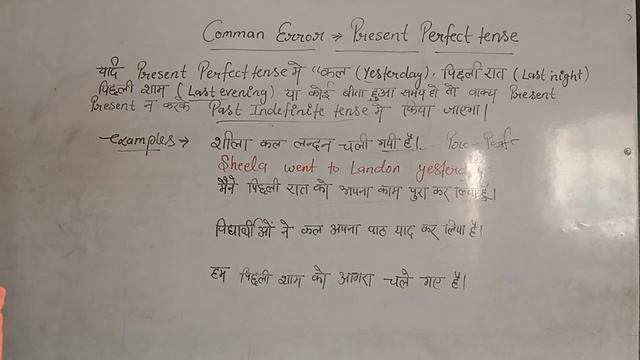 Comman Error → Present Perfect tense
यदि Present Perfect tense में "कल (Yesterday), पिछली रात (Last night)
पिछली शाम (Last evening) या कोई बीता हुआ समय हो तो वाक्य Present
Present न करके Past Indefinite tense में किया जाएगा।
Examples → शीला कल लन्दन चली गयी है। Pre-Perf
Sheela went to Landon yesterday
मैने पिछली रात को अपना काम पुरा कर लिया है।
विद्यार्थीओं ने कल अपना पाठ याद कर लिया है।
हम पिछली शाम को आगरा चले गए है।